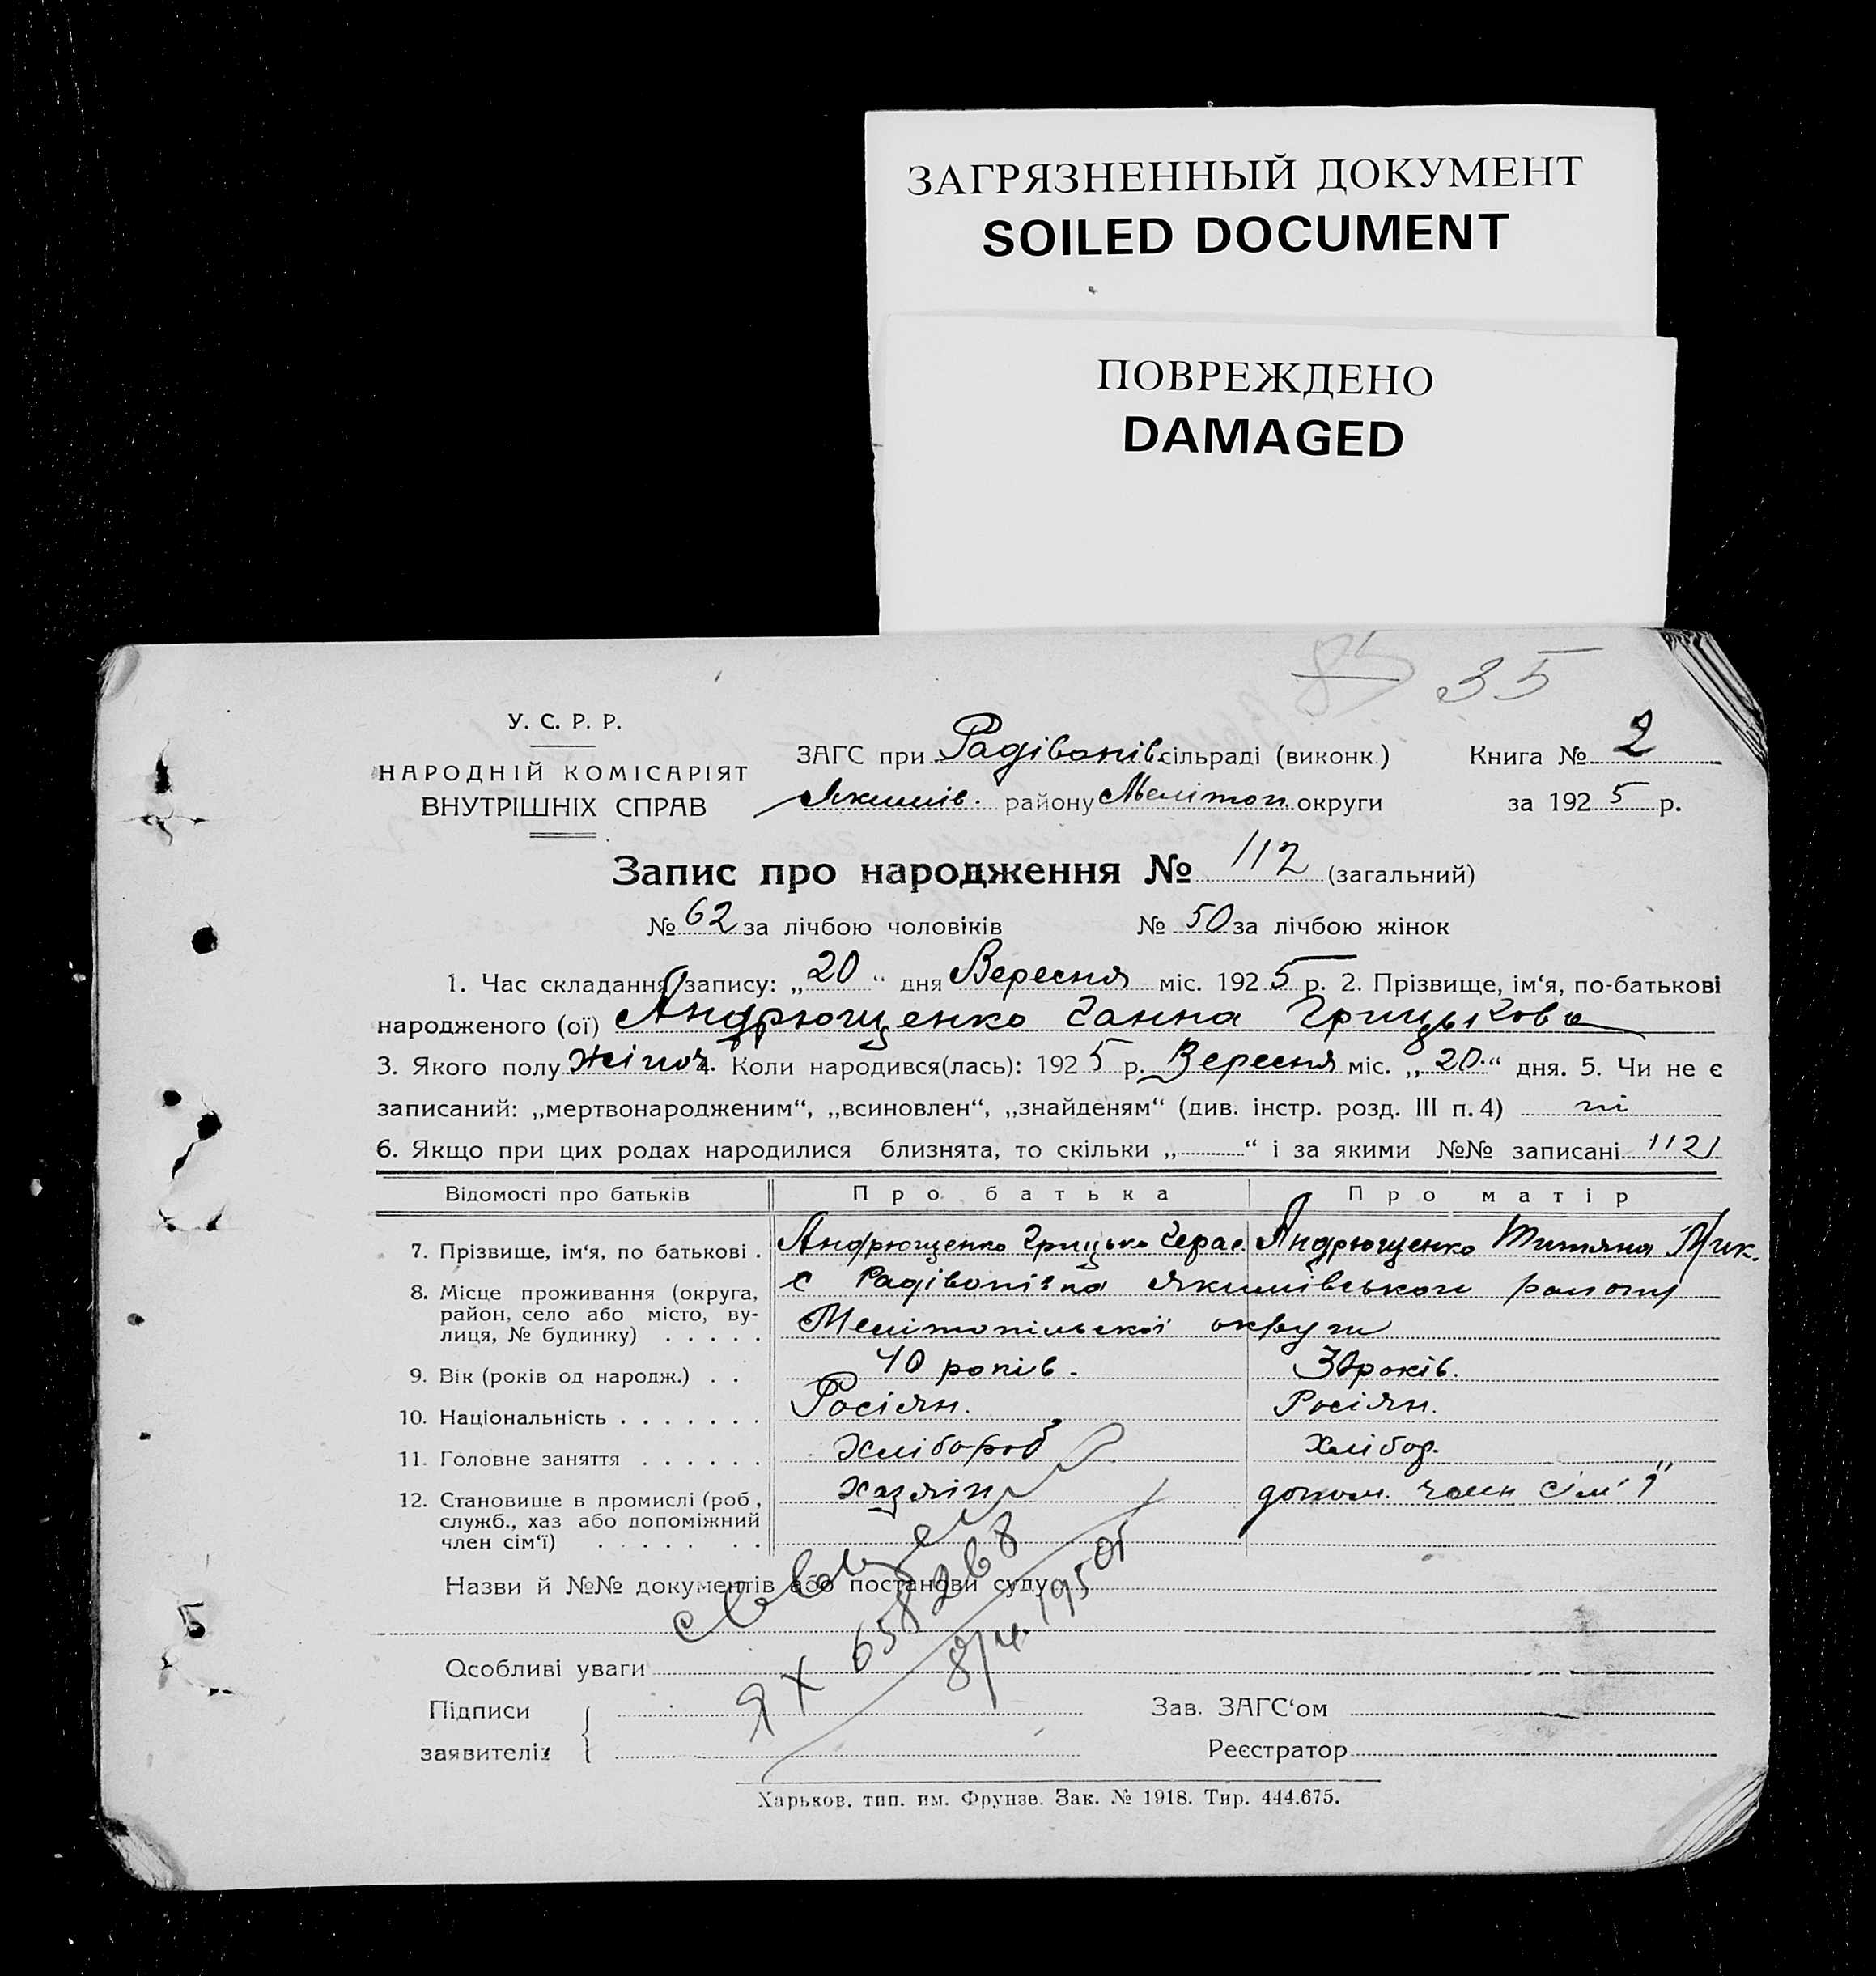 ЗАГРЯЗНЕННЫЙ ДОКУМЕНТ
SOILED DOCUMENT
ПОВРЕЖДЕНО
DAMAGED
85 35
У. С. Р. Р.
НАРОДНІЙ КОМІСАРІЯТ
ВНУТРІШНІХ СПРАВ
ЗАГС при Радівонів. сільраді (виконк.) Книга № 2
Якимів. району Мелітоп. округи за 1925 р.
Запис про народження № 112 (загальний)
№ 62 за лічбою чоловіків № 50 за лічбою жінок
1. Час складання запису: „20“ дня Вересня міс. 1925 р. 2. Прізвище, ім‘я, по-батькові
народженого (ої) Андрющенко Ганна Грицькова
3. Якого полу жіноч. 4. Коли народився(лась): 1925 р. Вересня міс. „20.“ дня. 5. Чи не є
записаний: „мертвонародженим“, „всиновлен“, „знайденям“ (див. інстр. розд. III п. 4) ні
6. Якщо при цих родах народилися близнята, то скільки „ “ і за якими №№ записані 1121
Відомості про батьків Про батька Про матір
7. Прізвище, ім‘я, по батькові . Андрющенко Грицько Герас. Андрющенко Титяна Мик.
8. Місце проживання (округа, район, село або місто, вулиця, № будинку) . . . . . с Радівонівка Якимівського району
Мелітопільскої округи
9. Вік (років од народж.) . . 40 років. 30 років.
10. Національність . . . . . . . Росіян. Росіян.
11. Головне заняття . . . . . . Хлібороб Хлібор.
12. Становище в промислі (роб., служб., хаз або допоміжний член сім‘ї) . . . . . . . Хазяїн допом. член сім'ї
Назви й №№ документів або постанови суду
ЯХ 658268
8/IV 1950г
Особливі уваги
Підписи заявителів
Зав. ЗАГС‘ом
Реєстратор
Харьков, тип. им. Фрунзе. Зак. № 1918. Тир. 444.675.